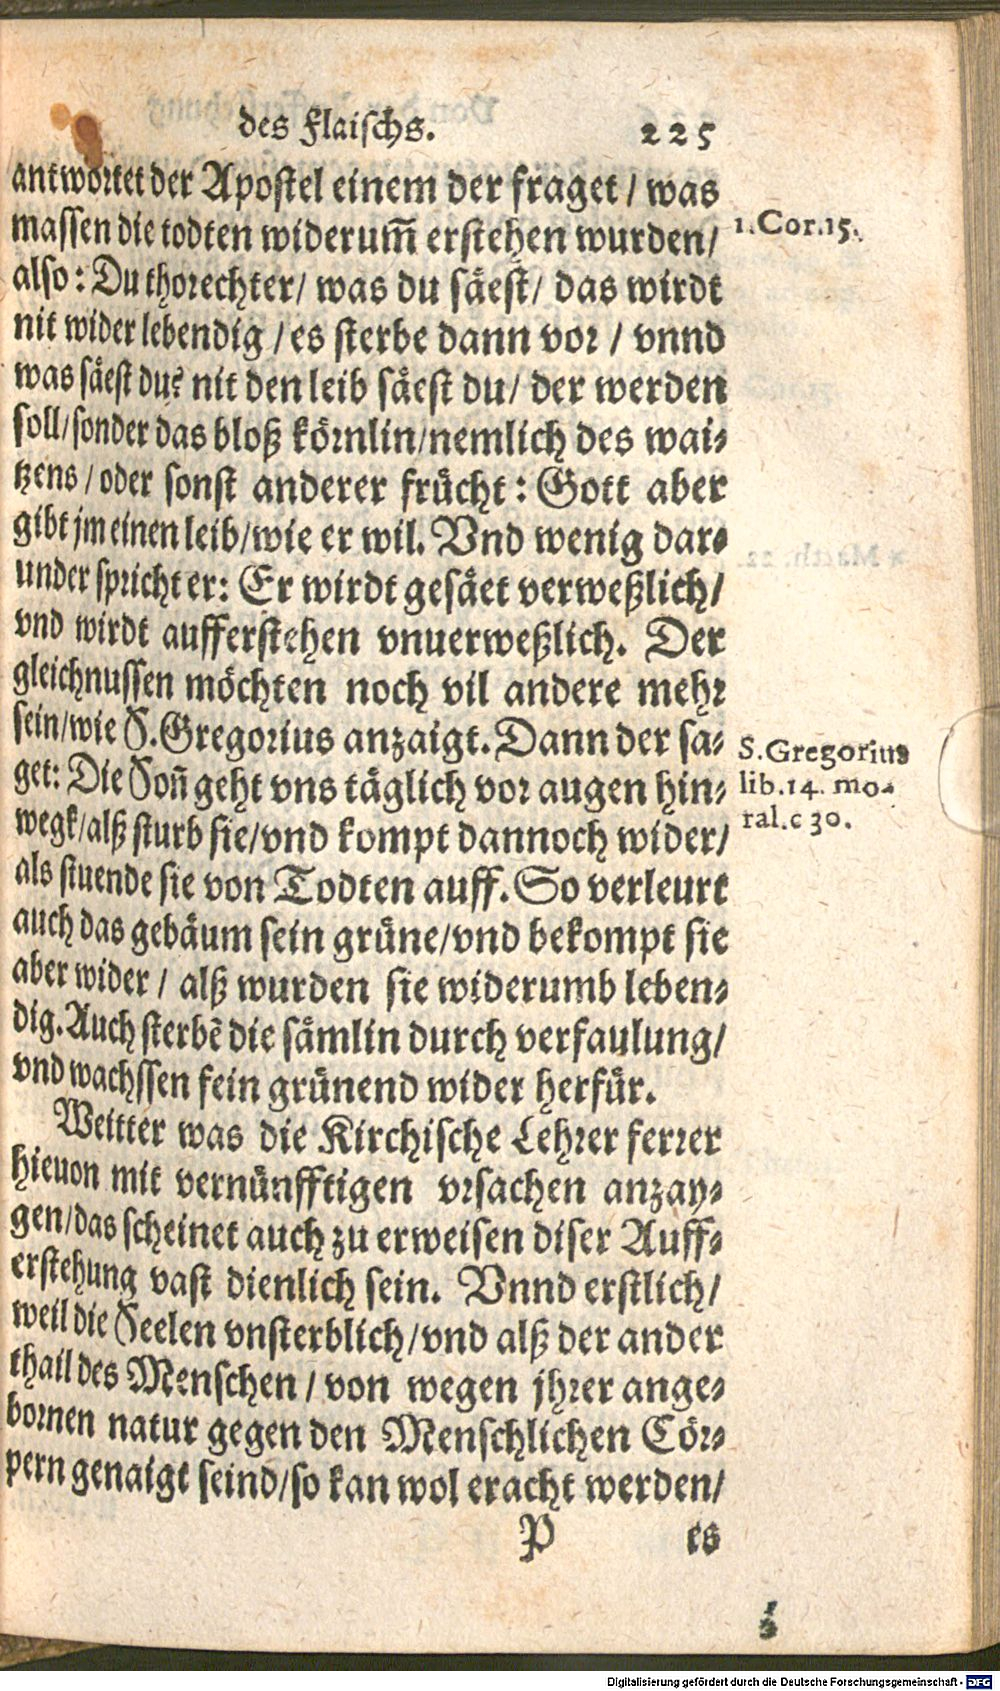 des Flaischs. 225
antwortet der Apostel einem der fraget / was
massen die todten widerum̃ erstehen wurden/
1. Cor. 15.
also: Du thorechter/ was du säest/ das wirdt
nit wider lebendig / es sterbe dann vor / vnnd
was säest du? nit den leib säest du/ der werden
soll/ sonder das bloß körnlin/ nemlich des wai⸗
tzens / oder sonst anderer frücht: Gott aber
gibt jm einen leib/ wie er wil. Vnd wenig dar⸗
under spricht er: Er wirdt gesäet verweßlich/
vnd wirdt aufferstehen vnuerweßlich. Der
gleichnussen möchten noch vil andere mehr
sein/ wie S. Gregorius anzaigt. Dann der sa⸗
get: Die Son̄ geht vns täglich vor augen hin⸗
S. Gregorius
lib. 14. mo-
ral. c 30.
wegk/ alß sturb sie/ vnd kompt dannoch wider/
als stuende sie von Todten auff. So verleurt
auch das gebäum sein grüne/ vnd bekompt sie
aber wider / alß wurden sie widerumb leben⸗
dig. Auch sterbē die sämlin durch verfaulung/
vnd wachssen fein grünend wider herfür.
Weitter was die Kirchische Lehrer ferrer
hieuon mit vernünfftigen vrsachen anzay⸗
gen/ das scheinet auch zu erweisen diser Auff⸗
erstehung vast dienlich sein. Vnnd erstlich/
weil die Seelen vnsterblich/ vnd alß der ander
thail des Menschen / von wegen jhrer ange⸗
bornen natur gegen den Menschlichen Cör⸗
pern genaigt seind/ so kan wol eracht werden/
P es
Digitalisierung gefördert durch die Deutsche Forschungsgemeinschaft - DFG